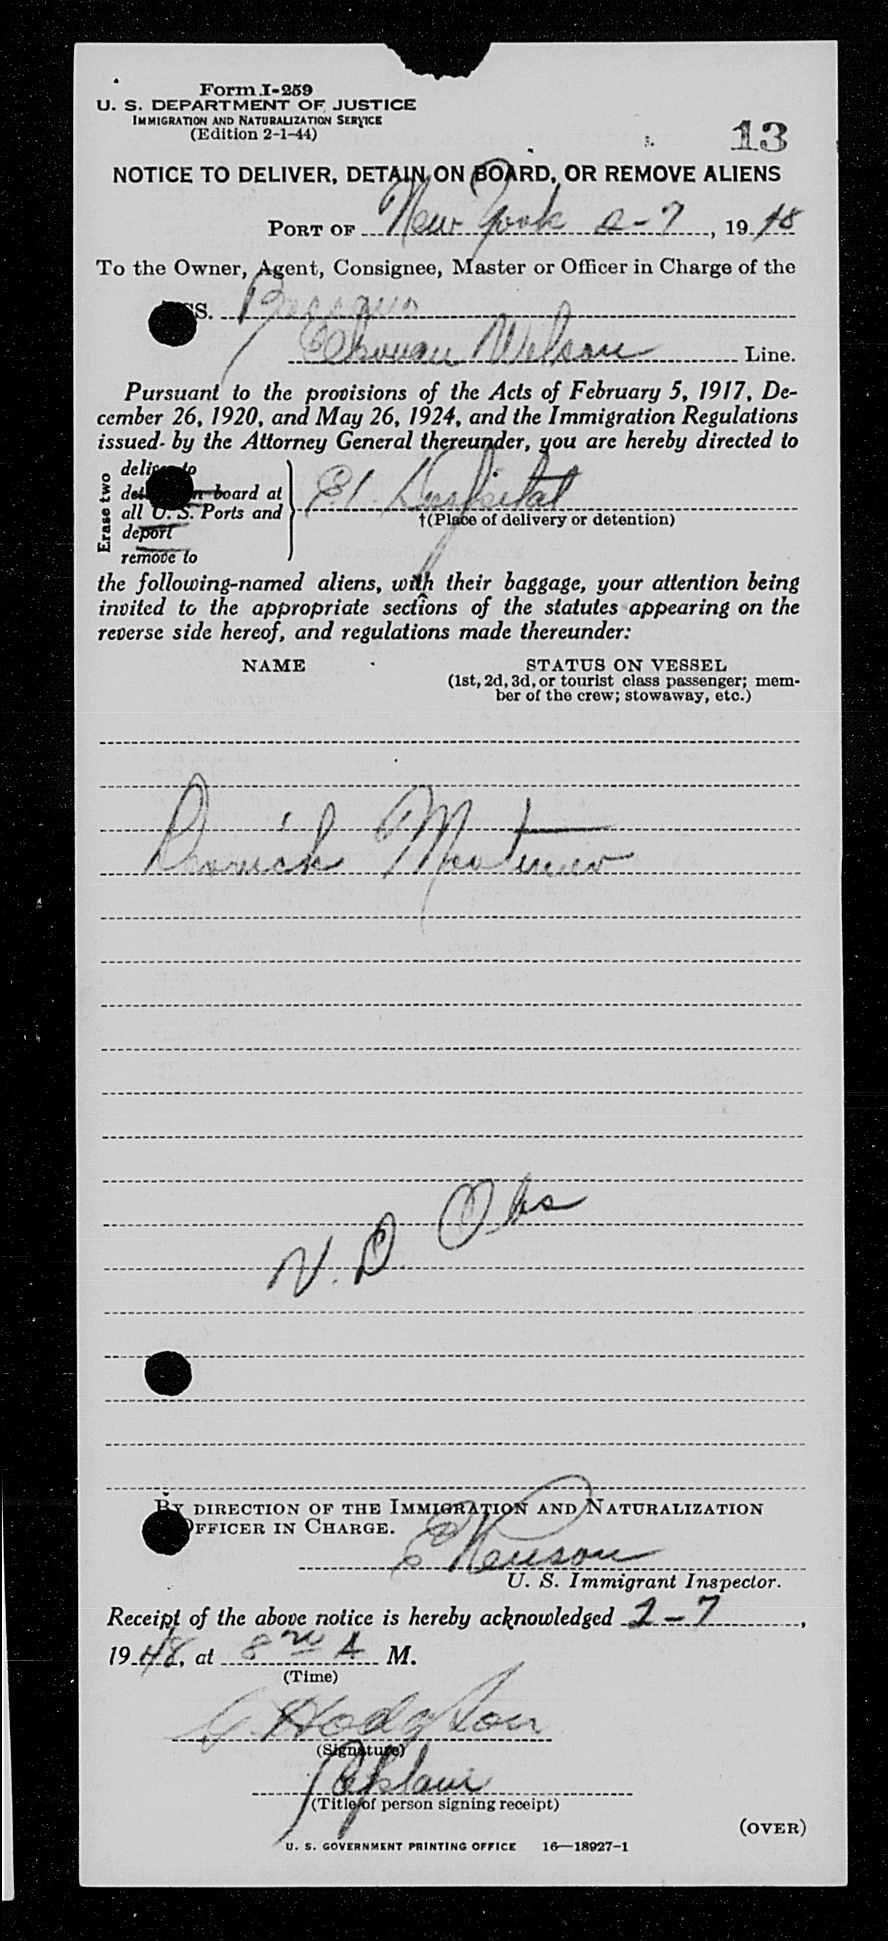 Form I-259
U. S. DEPARTMENT OF JUSTICE
IMMIGRATION AND NATURALIZATION SERVICE
(Edition 2-1-44)
13
NOTICE TO DELIVER, DETAIN ON BOARD, OR REMOVE ALIENS
PORT OF New York 2-7, 1948
To the Owner, Agent, Consignee, Master or Officer in Charge of the
SS.
Wilson Line.
Pursuant to the provisions of the Acts of February 5, 1917, De-
cember 26, 1920, and May 26, 1924, and the Immigration Regulations
issued by the Attorney General thereunder, you are hereby directed to
Erase two
deliver to
detain on board at
all U. S. Ports and
deport
remove to
E.I. Hospital
†(Place of delivery or detention)
the following-named aliens, with their baggage, your attention being
invited to the appropriate sections of the statutes appearing on the
reverse side hereof, and regulations made thereunder:
NAME STATUS ON VESSEL
(1st, 2d, 3d, or tourist class passenger; mem-
ber of the crew; stowaway, etc.)
V. D. Obs
BY DIRECTION OF THE IMMIGRATION AND NATURALIZATION
OFFICER IN CHARGE.
U. S. Immigrant Inspector.
Receipt of the above notice is hereby acknowledged 2-7,
1948, at 8 A M.
(Time)
G. Hodgson
(Signature)
Captain
(Title of person signing receipt)
(OVER)
U. S. GOVERNMENT PRINTING OFFICE 16—18927-1